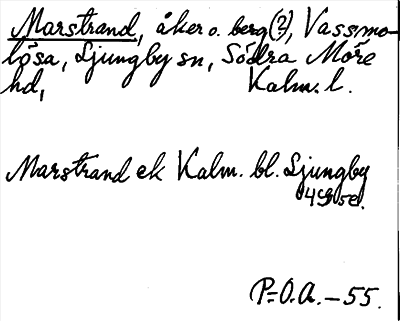 Marstrand, åker o. berg(?), Vassmo-
lösa, Ljungby sn, Södra Möre
hd, Kalm. l.
Marstrand ek Kalm. bl. Ljungby
P-O.A. - 55.